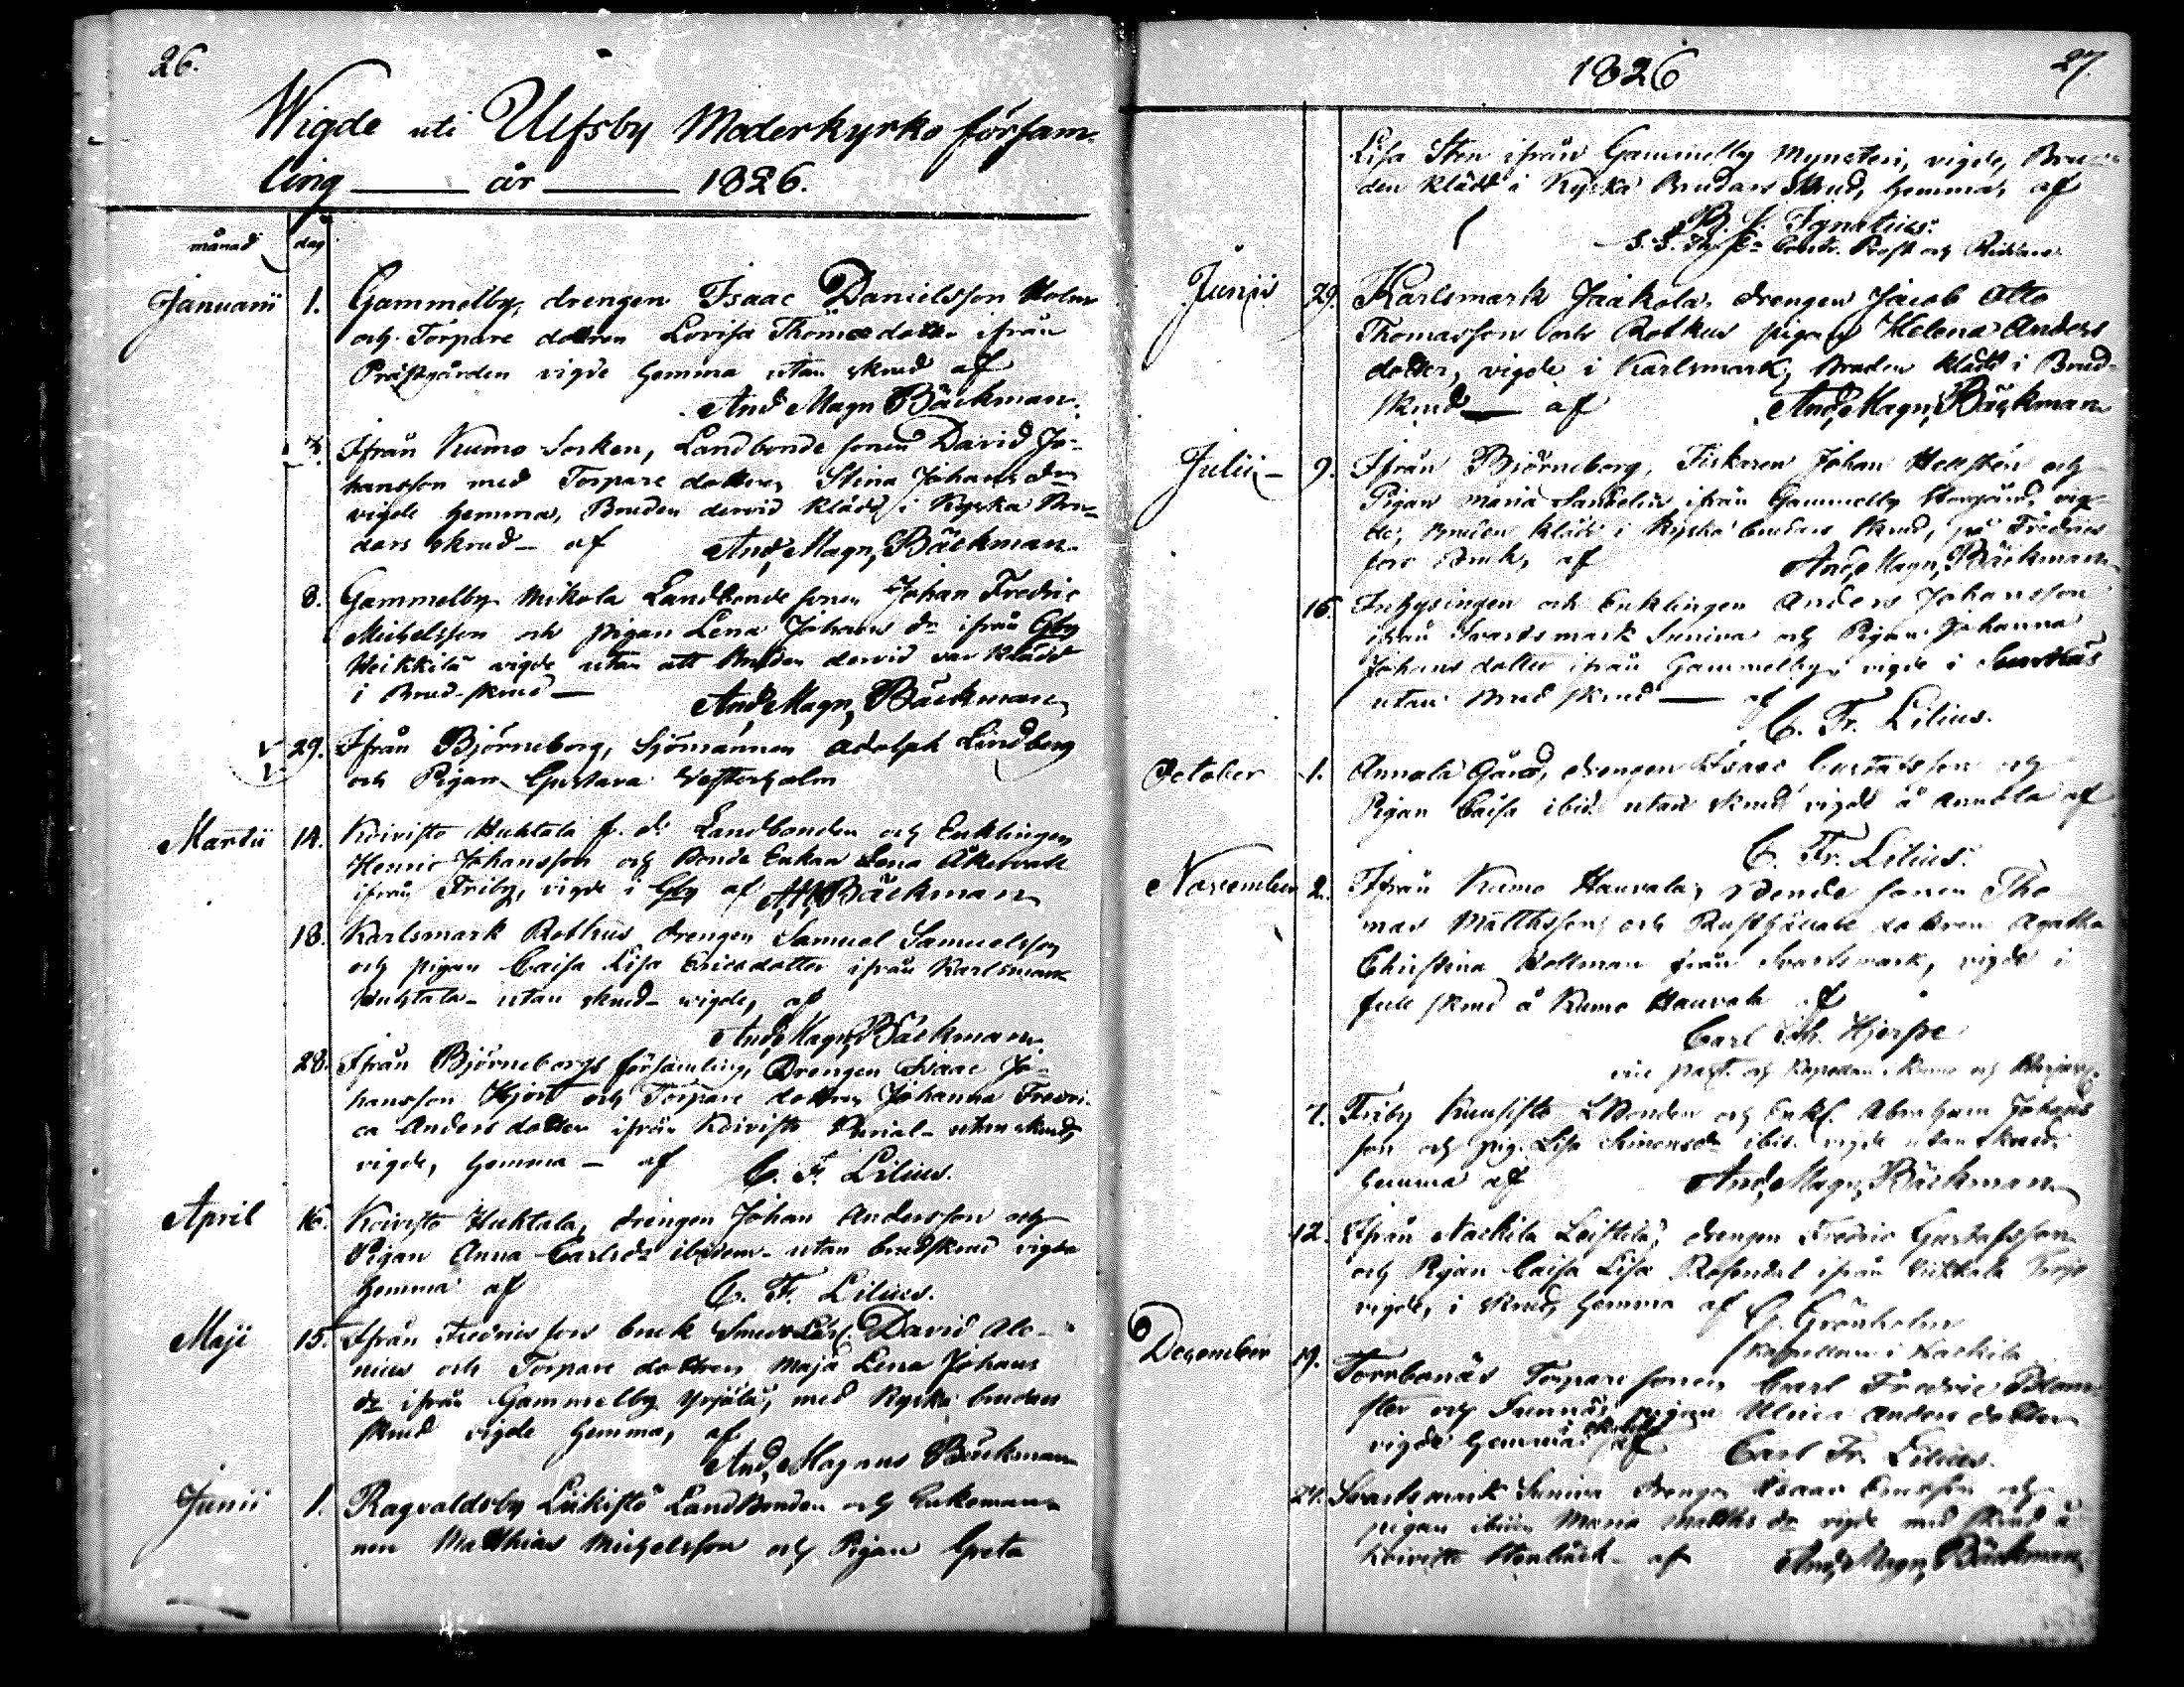 26.
Wigde uti Ulfsby Moderkyrko försam-
ling år 1826.
månad dag
Januarii 1. Gammelby, drengen Isaac Danielsson Holm
och Torpare dottren Lovisa Thomædotter ifrån
Prästgården vigde hemma utan skrud af
And Magn Bäckman.
Ifrån Kumo Socken, Landbonde sonen David Jo-
hansson med Torpare dottren Stina Johans dr
vigde hemma, Bruden dervid klädd i Kyrka Bru-
dars skrud - af And Magn Bäckman.
8. Gammelby Mikola Landbonde sonen Johan Fredric
Michelsson och pigan Lena Johans dr ifrån Gby
Heikkilä vigde utan att Bruden dervid var klädd
i Brud-skrud — And Magn Bäckman
29. Ifrån Björneborg, Sjömannen Adolph Lindberg
och Pigan Gustava Vesterholm
Martii 14. Koivisto Huhtala f. d. Landbonden och Enklingen
Henric Johansson och Bonde Enkan Lena Åkervall
ifrån Friby, vigde i Gby af A M Bäckman
18. Karlsmark Rothus drengen Samuel Samuelsson
och pigan Caisa Lisa Ericsdotter ifrån Karlsmark
Huhtala - utan skrud - vigde, af
And Magn Bäckman.
28. Ifrån Björneborgs församling, Drengen Isaac Jo-
hansson Hjort och Torpare dottren Johanna Fredri-
ca Anders dotter ifrån Koivisto utan skrud,
vigde, hemma - af C. F. Lilius.
April 16. Koivisto Huhtala, drengen Johan Andersson och
Pigan Anna Carlsdr ibidem - utan brudskrud vigde
hemma af C. F. Lilius.
Maji 15. Ifrån Fredricsfors bruk David Ale-
nius och Torpare dottren Maja Lena Johans
dr ifrån Gammelby Yrjälä, med Kyrko brudars
skrud vigde hemma, af
And Magnus Bäckman
Junii 1. Ragvaldsby Liikisto Landbonden och Enkeman-
nen Matthias Michelsson och Pigan Greta
1826 27.
Lisa Sten ifrån Gammelby Mynsteri, vigde, Bru-
den klädd i Kyrko Brudars Skrud, hemma, af
B. J. Ignatius.
Contr. Prost och
Junii 29. Karlsmark Jaakola, drengen Jacob Otto
Thomasson och Rotkus pigan Helena Anders
dotter, vigde i Karlsmark, Bruden klädd i Brud-
skrud — af And Magn Bäckman
Julii - 9. Ifrån Björneborg, Fiskaren Johan Hellstén och
Pigan Maria Sandelin ifrån Gammelby vig-
de, Bruden klädd i Kyrko brudars skrud, på Fredrics
fors Bruk, af And Magn Bäckman
16. Inhysingen och Enklingen Anders Johansson
ifrån Svartsmark Suniva och Pigan Johanna
Johans dotter ifrån Gammelby, vigde i Sunnäs
utan Brud skrud — af
C. Fr. Lilius.
October 1. Annala Gård, drengen Isaac Gustafsson och
Pigan Caisa ibid. utan skrud vigde å Annala af
C. Fr. Lilius.
November 2. Ifrån Kumo Haurala, Bonde sonen Tho
mas Matthsson och Rusthållare dottren Agatha
Christina ifrån Svartsmark, vigde i
full skrud å Kumo Haurala af
Carl Joh. Hjerpe
vice past. och Kapellan i Kumo och
7. Friby LBonden och Enkl. Abraham Johans
son och pig. Lisa Simonsdr ibid. vigde utan skrud
hemma af And Magn Bäckman
12. Ifrån Nackila Leistilä, drengen Fredric Gustafsson
och Pigan Caisa Lisa Rosendal ifrån
vigde, i skrud, hemma af G. Grönholm
Kapellan i Nackila
December 19. Torpare sonen Carl Fredric Blom
ster och Sunnäs pigan Ulrica Anders dotter
vigde hemma af Carl Fr. Lilius.
Svartsmark Suniva drengen Isaac Ericsson och
pigan ibidem Maria Matths dr vigde med skrud å
Koivisto Stenbäck - af And Magn Bäckman